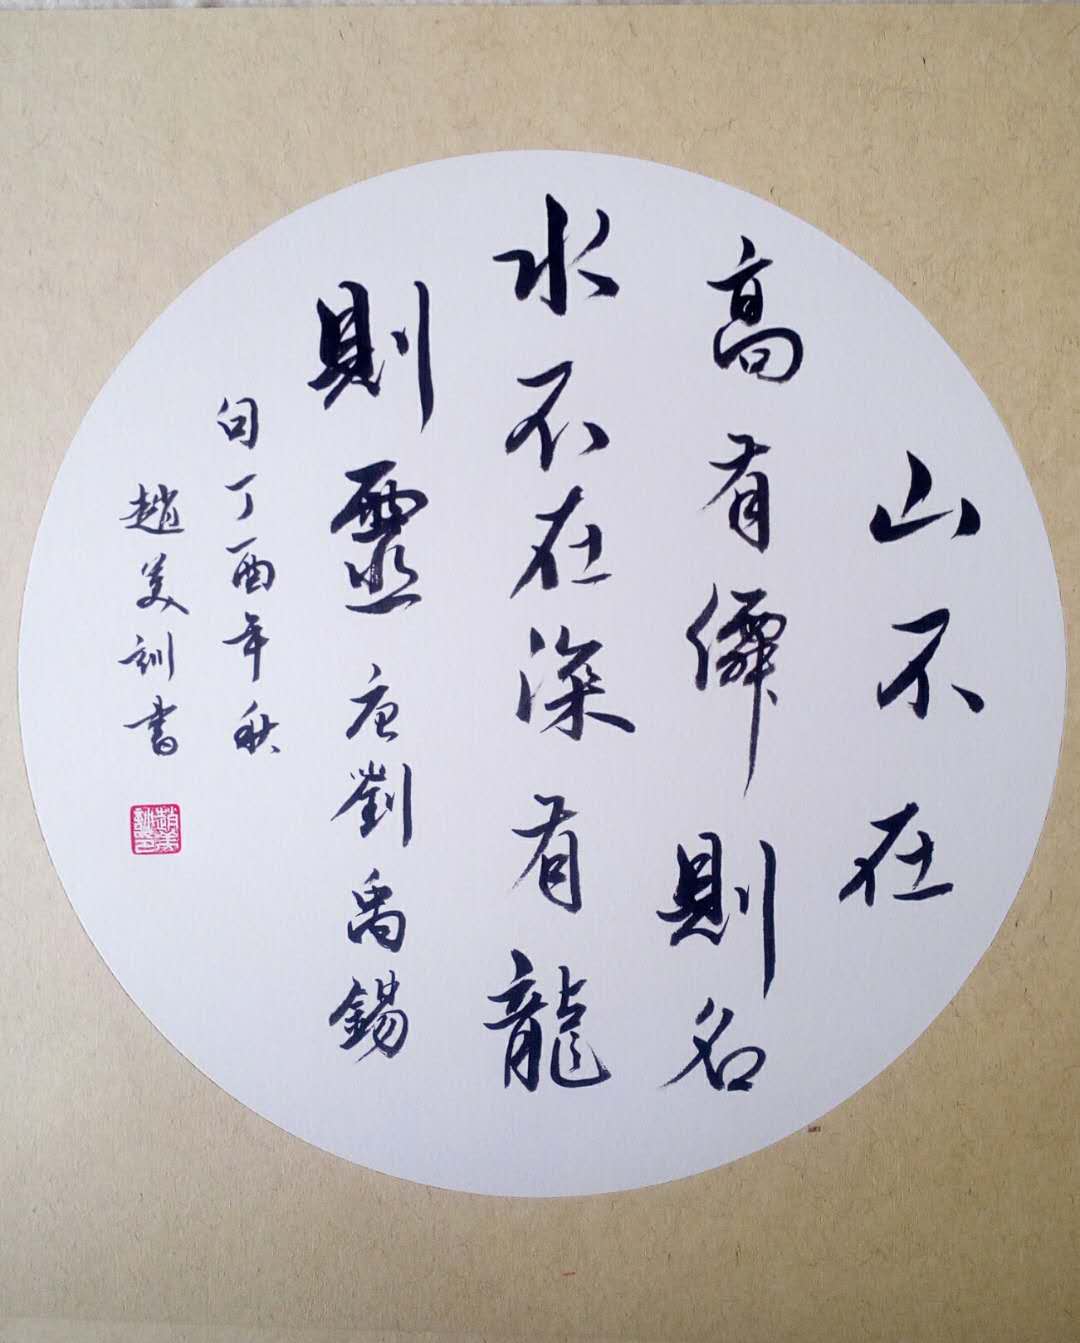 山不在
高有僊則名
水不在深有龍
則靈唐劉禹錫
句丁酉年秋
趙美訓書
趙美訓印